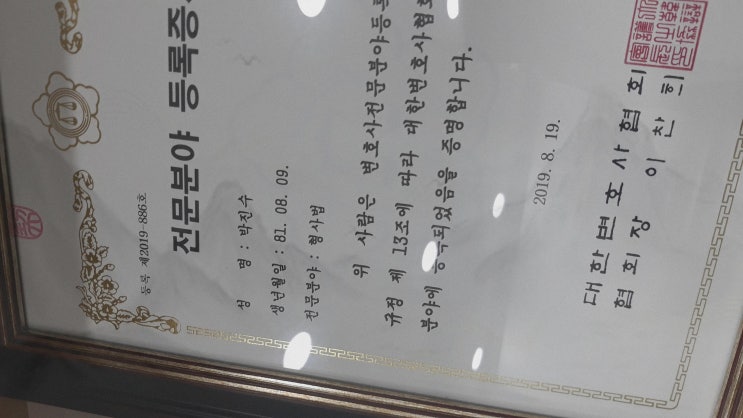 등록 제2019-886호
전문분야 등록증
성 명 : 박진수
생년월일 : 81. 08. 09.
전문분야 : 형사법
위 사람은 변호사전문분야등록
규정 제 13조에 따라 대한변호사협회
분야에 등록되었음을 증명합니다.
2019. 8. 19.
대한변호사협회
협회장 이찬희